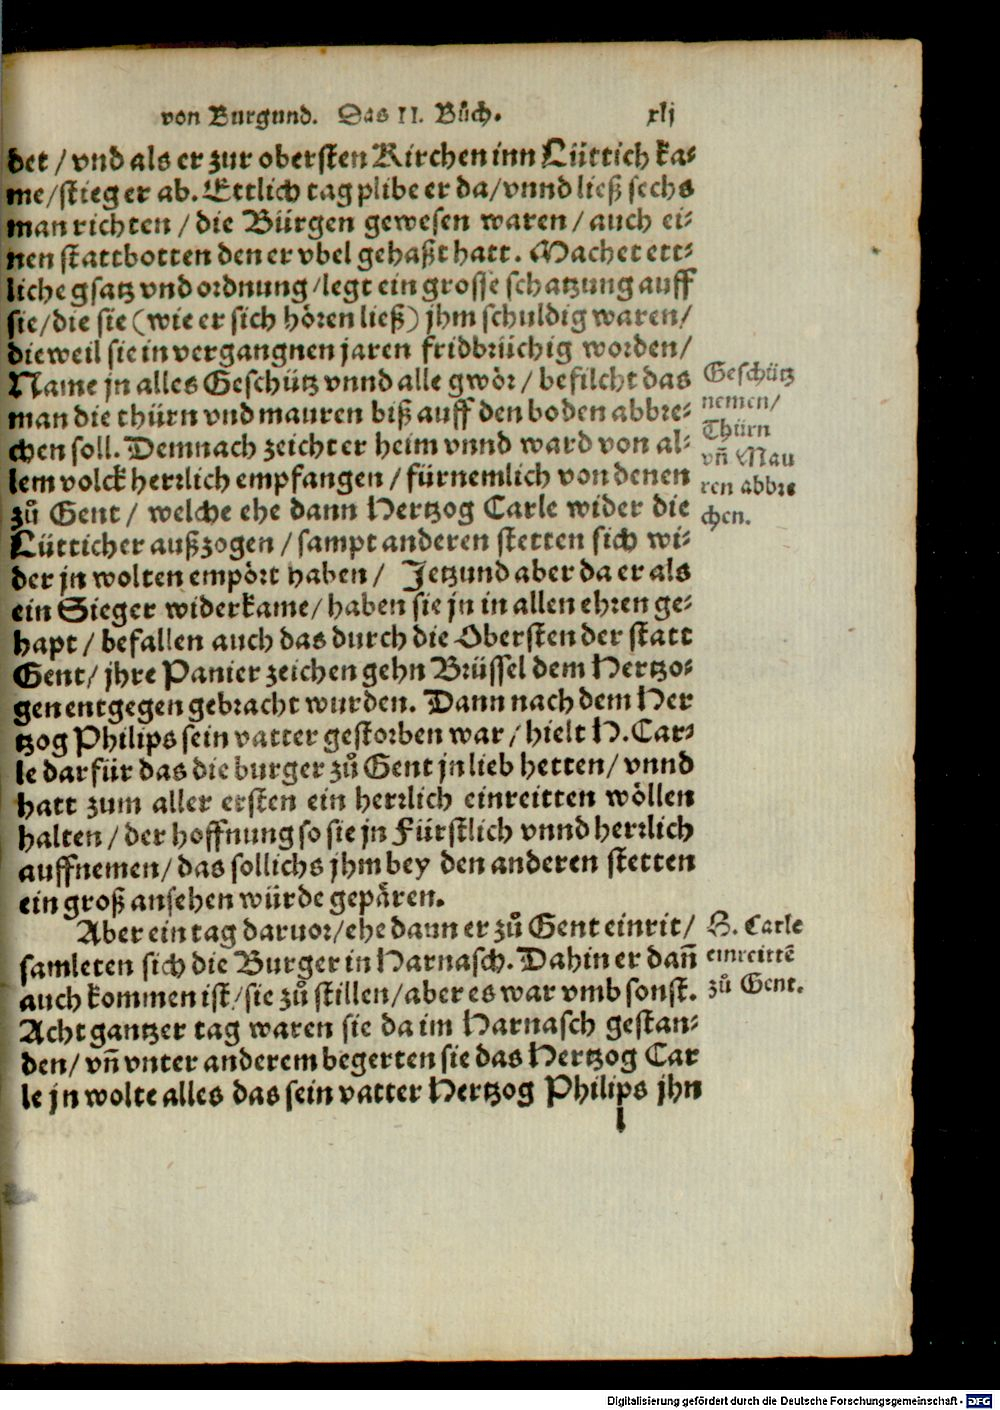 von Burgund. Das II. Bůch. xlj
det / vnd als er zur obersten Kirchen inn Lüttich ka⸗
me/stieg er ab. Ettlich tag plibe er da/vnnd ließ sechs
man richten / die Bürgen gewesen waren / auch ei⸗
nen stattbotten den er vbel gehaßt hatt. Machet ett⸗
liche gsatz vnd ordnung /legt ein grosse schatzung auff
sie/die sie (wie er sich hören ließ) jhm schuldig waren/
dieweil sie in vergangnen jaren fridbrüchig worden/
Name jn alles Geschütz vnnd alle gwör / befilcht das
man die thürn vnd mauren biß auff den boden abbre⸗
chen soll. Demnach zeicht er heim vnnd ward von al⸗
lem volck herrlich empfangen / fürnemlich von denen
zů Gent / welche ehe dann Hertzog Carle wider die
Lütticher außzogen / sampt anderen stetten sich wi⸗
der jn wolten empört haben / Jetzund aber da er als
ein Sieger widerkame/ haben sie jn in allen ehren ge⸗
hapt / befallen auch das durch die Obersten der statt
Gent/ jhre Panier zeichen gehn Brüssel dem Hertzo⸗
gen entgegen gebracht wurden. Dann nach dem Her
tzog Philips sein vatter gestorben war / hielt H. Car⸗
le darfür das die burger zů Gent jn lieb hetten/ vnnd
hatt zum aller ersten ein herrlich einreitten wöllen
halten / der hoffnung so sie jn Fürstlich vnnd herrlich
auffnemen/ das sollichs jhm bey den anderen stetten
ein groß ansehen würde gepären.
Aber ein tag daruor/ehe dann er zů Gent einrit/
samleten sich die Burger in Harnasch. Dahin er dañ
auch kommen ist/sie zů stillen/aber es war vmb sonst.
Acht gantzer tag waren sie da im Harnasch gestan⸗
den/ vñ vnter anderem begerten sie das Hertzog Car
le jn wolte alles das sein vatter Hertzog Philips jhn
l
Geschütz
nemen/
Thürn
vñ Mau
ren abbre
chen.
H. Carle
einreittē
zů Gent.
Digitalisierung gefördert durch die Deutsche Forschungsgemeinschaft - DFG